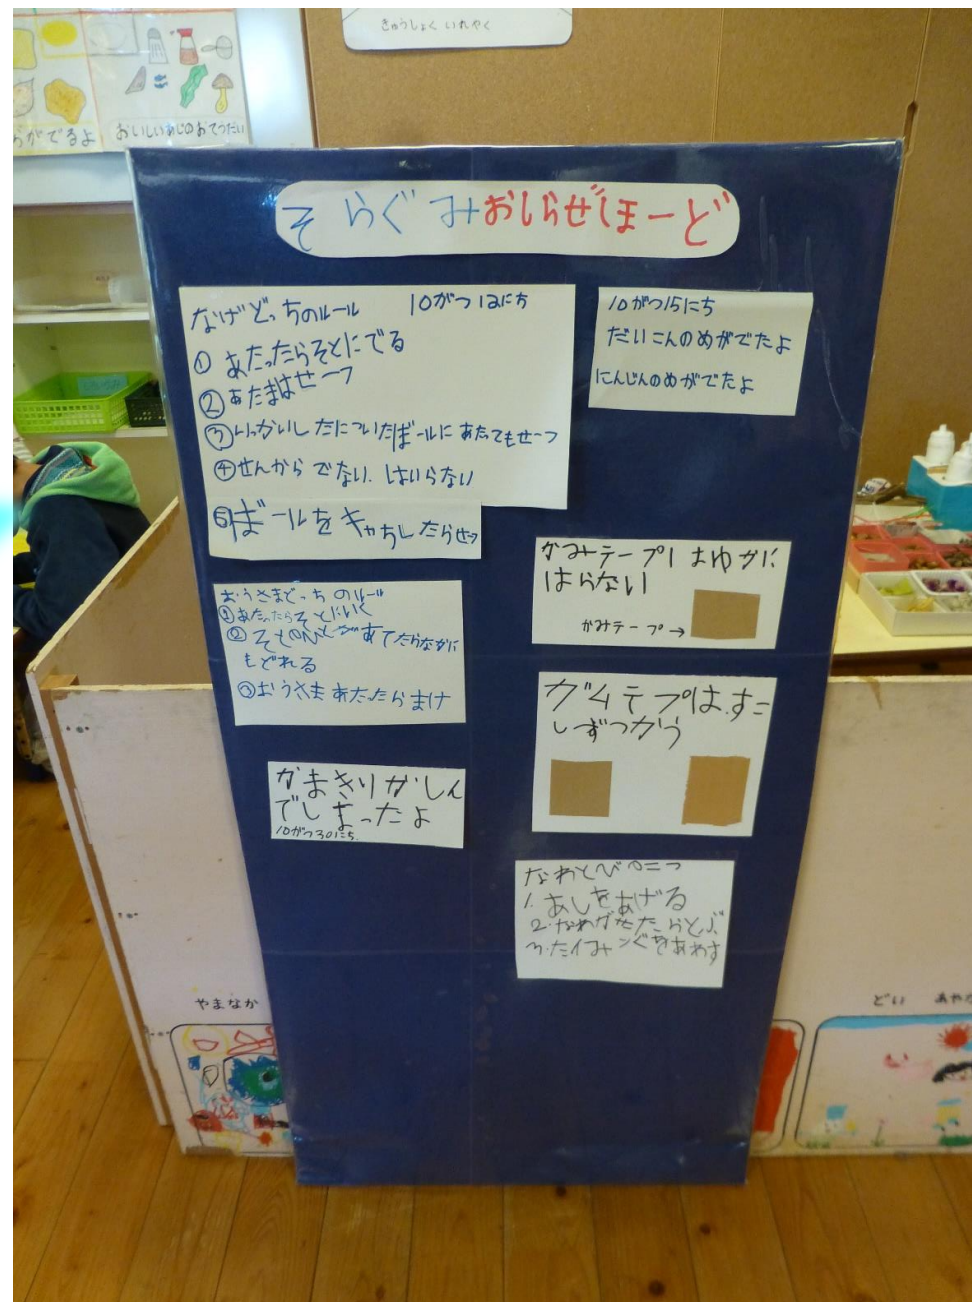 きゅうしょく いれやく
らがでるよ
おいしいあじのおてつだい
そらぐみおしらせぼーど
なげどっちのルール 10がつ12にち
① あたったらそとにでる
②あたまはせーフ
③いっかいしたについたぼールにあたってもせーフ
④せんからでない.はいらない
⑤ぼールをキャちしたらせーフ
10がつ15にち
だいこんのめがでたよ
にんじんのめがでたよ
おうさまどっちのルール
①あたったらそとにいく
②そとのひとがあてたらなかに
もどれる
③おうさまあたったらまけ
かみテープはゆかに
はらない
かみテープ→
ガムテプは.すこ
しずつかう
かまきりがしん
でしまったよ
10がつ30にち.
なわとびのこつ
1.あしをあげる
2.なわがきたらとぶ
3.たイみングをあわす
やまなか
どい あやな